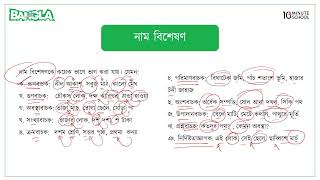 BANGLA
10 MINUTE SCHOOL
নাম বিশেষণ
নাম বিশেষণকে কয়েক ভাগে ভাগ করা যায়। যেমন:
ক. রূপবাচক: নীল আকাশ, সবুজ মাঠ, কালো মেঘ
খ. গুণবাচক: চৌকস লোক, দক্ষ কারিগর, ঠাণ্ডা হাওয়া
গ. অবস্থাবাচক: তাজা মাছ, রোগা ছেলে, খোঁড়া পা
ঘ. সংখ্যাবাচক: হাজার লোক, দশ দশা, শ টাকা
ঙ. ক্রমবাচক: দশম শ্রেণি, সত্তর পৃষ্ঠা, প্রথমা কন্যা
চ. পরিমাণবাচক: বিঘাটেক জমি, পাঁচ শতাংশ ভূমি, হাজার
টনী জাহাজ
ছ. অংশবাচক: অর্ধেক সম্পত্তি, ষোল আনা দখল, সিকি পথ
জ. উপাদানবাচক: বেলে মাটি, মেটে কলসি, পাথুরে মূর্তি
ঝ. প্রশ্নবাচক: কতদূর পথ?, কেমন অবস্থা?
ঞ. নির্দিষ্টতাজ্ঞাপক: এই লোক, সেই ছেলে, ছাব্বিশে মার্চ